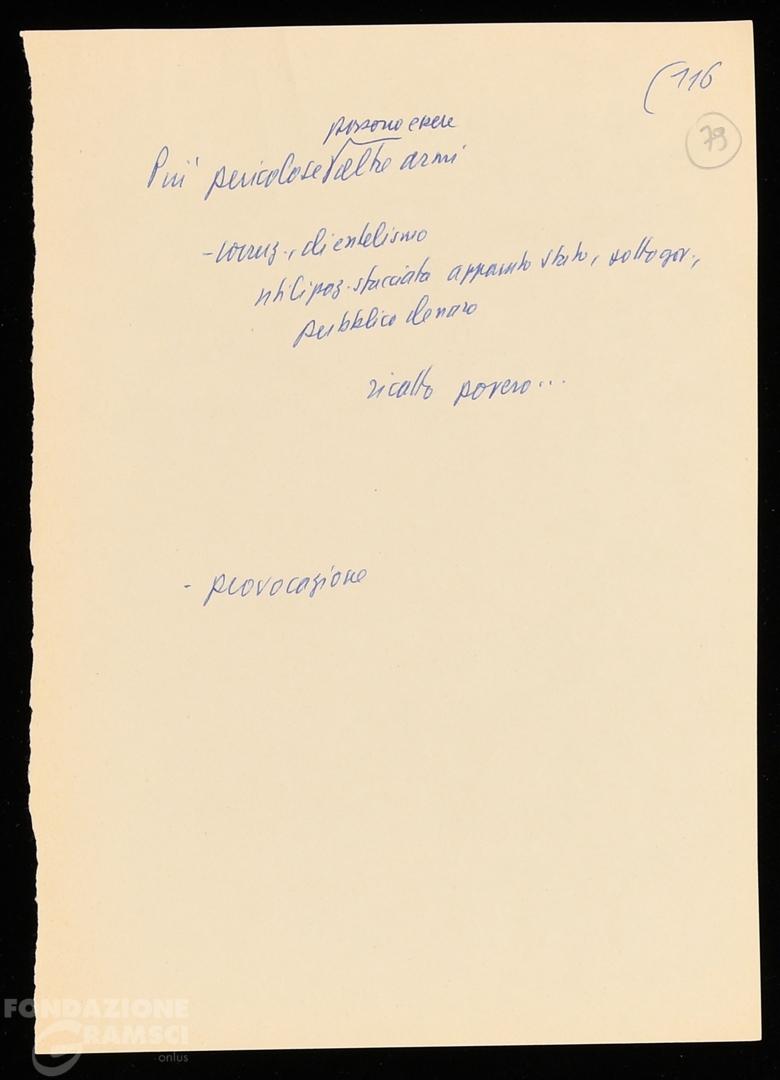 (116
79
possono essere
Più pericolose altre armi
- corruz., clientelismo
utilizzaz. sfacciata apparato stato, sottogov.,
pubblico denaro
ricatto povero...
- provocazione
FONDAZIONE
GRAMSCI
onlus